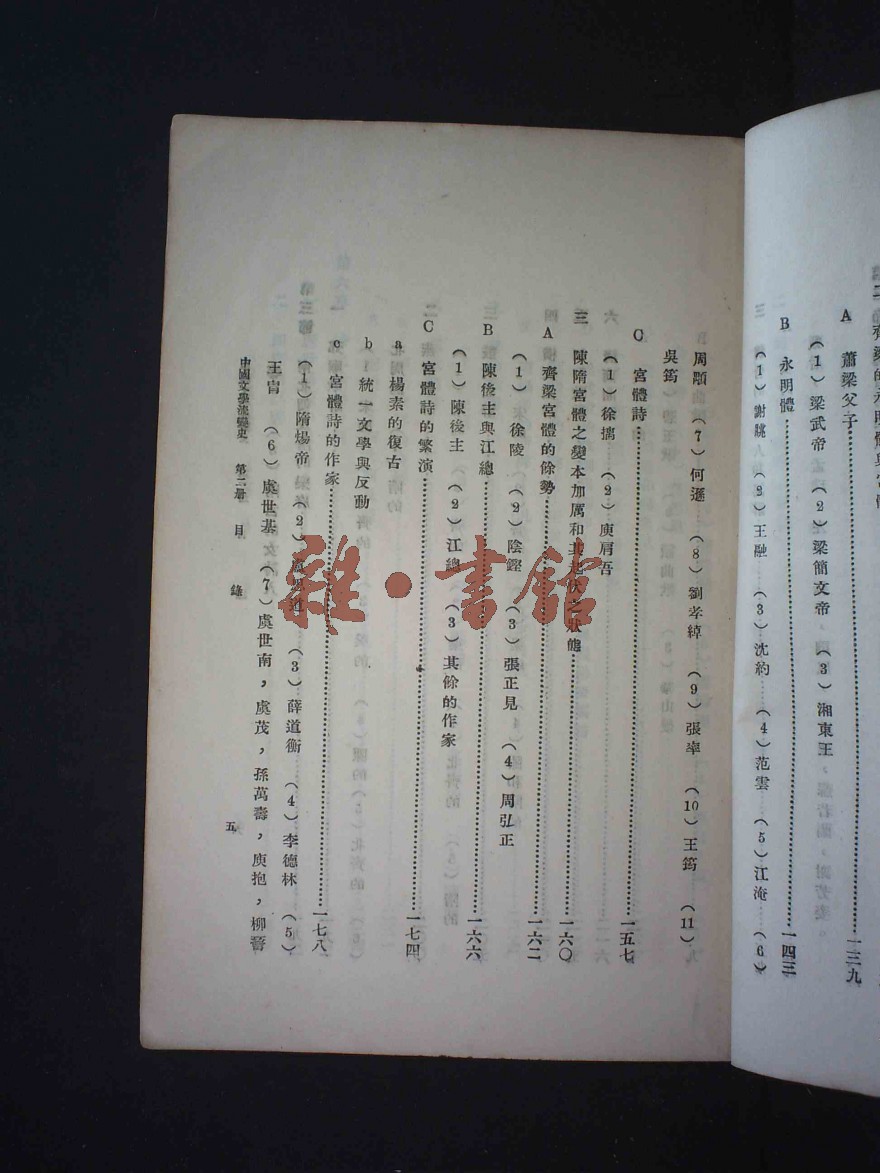 齊梁的永明體與宮體
A 蕭梁父子……一三九
（1）梁武帝 （2）梁簡文帝 （3）湘東王
B 永明體……一四三
（1）謝朓 （2）王融 （3）沈約 （4）范雲 （5）江淹 （6）
周顒 （7）何遜 （8）劉孝綽 （9）張率 （10）王筠 （11）
吳筠
C 宮體詩……一五七
（1）徐摛 （2）庾肩吾
三 陳隋宮體之變本加厲和其起伏之狀態……一六〇
A 齊梁宮體的餘勢……一六二
（1）徐陵 （2）陰鏗 （3）張正見 （4）周弘正
B 陳後主與江總……一六六
（1）陳後主 （2）江總 （3）其餘的作家
C 宮體詩的繁演……一七四
a 楊素的復古
b 統一文學與反動
c 宮體詩的作家……一七八
（1）隋煬帝 （2）盧思道 （3）薛道衡 （4）李德林 （5）
王冑 （6）虞世基 （7）虞世南，虞茂，孫萬壽，庾抱，柳䛒
中國文學流變史 第二册 目 錄
五
雜·書館